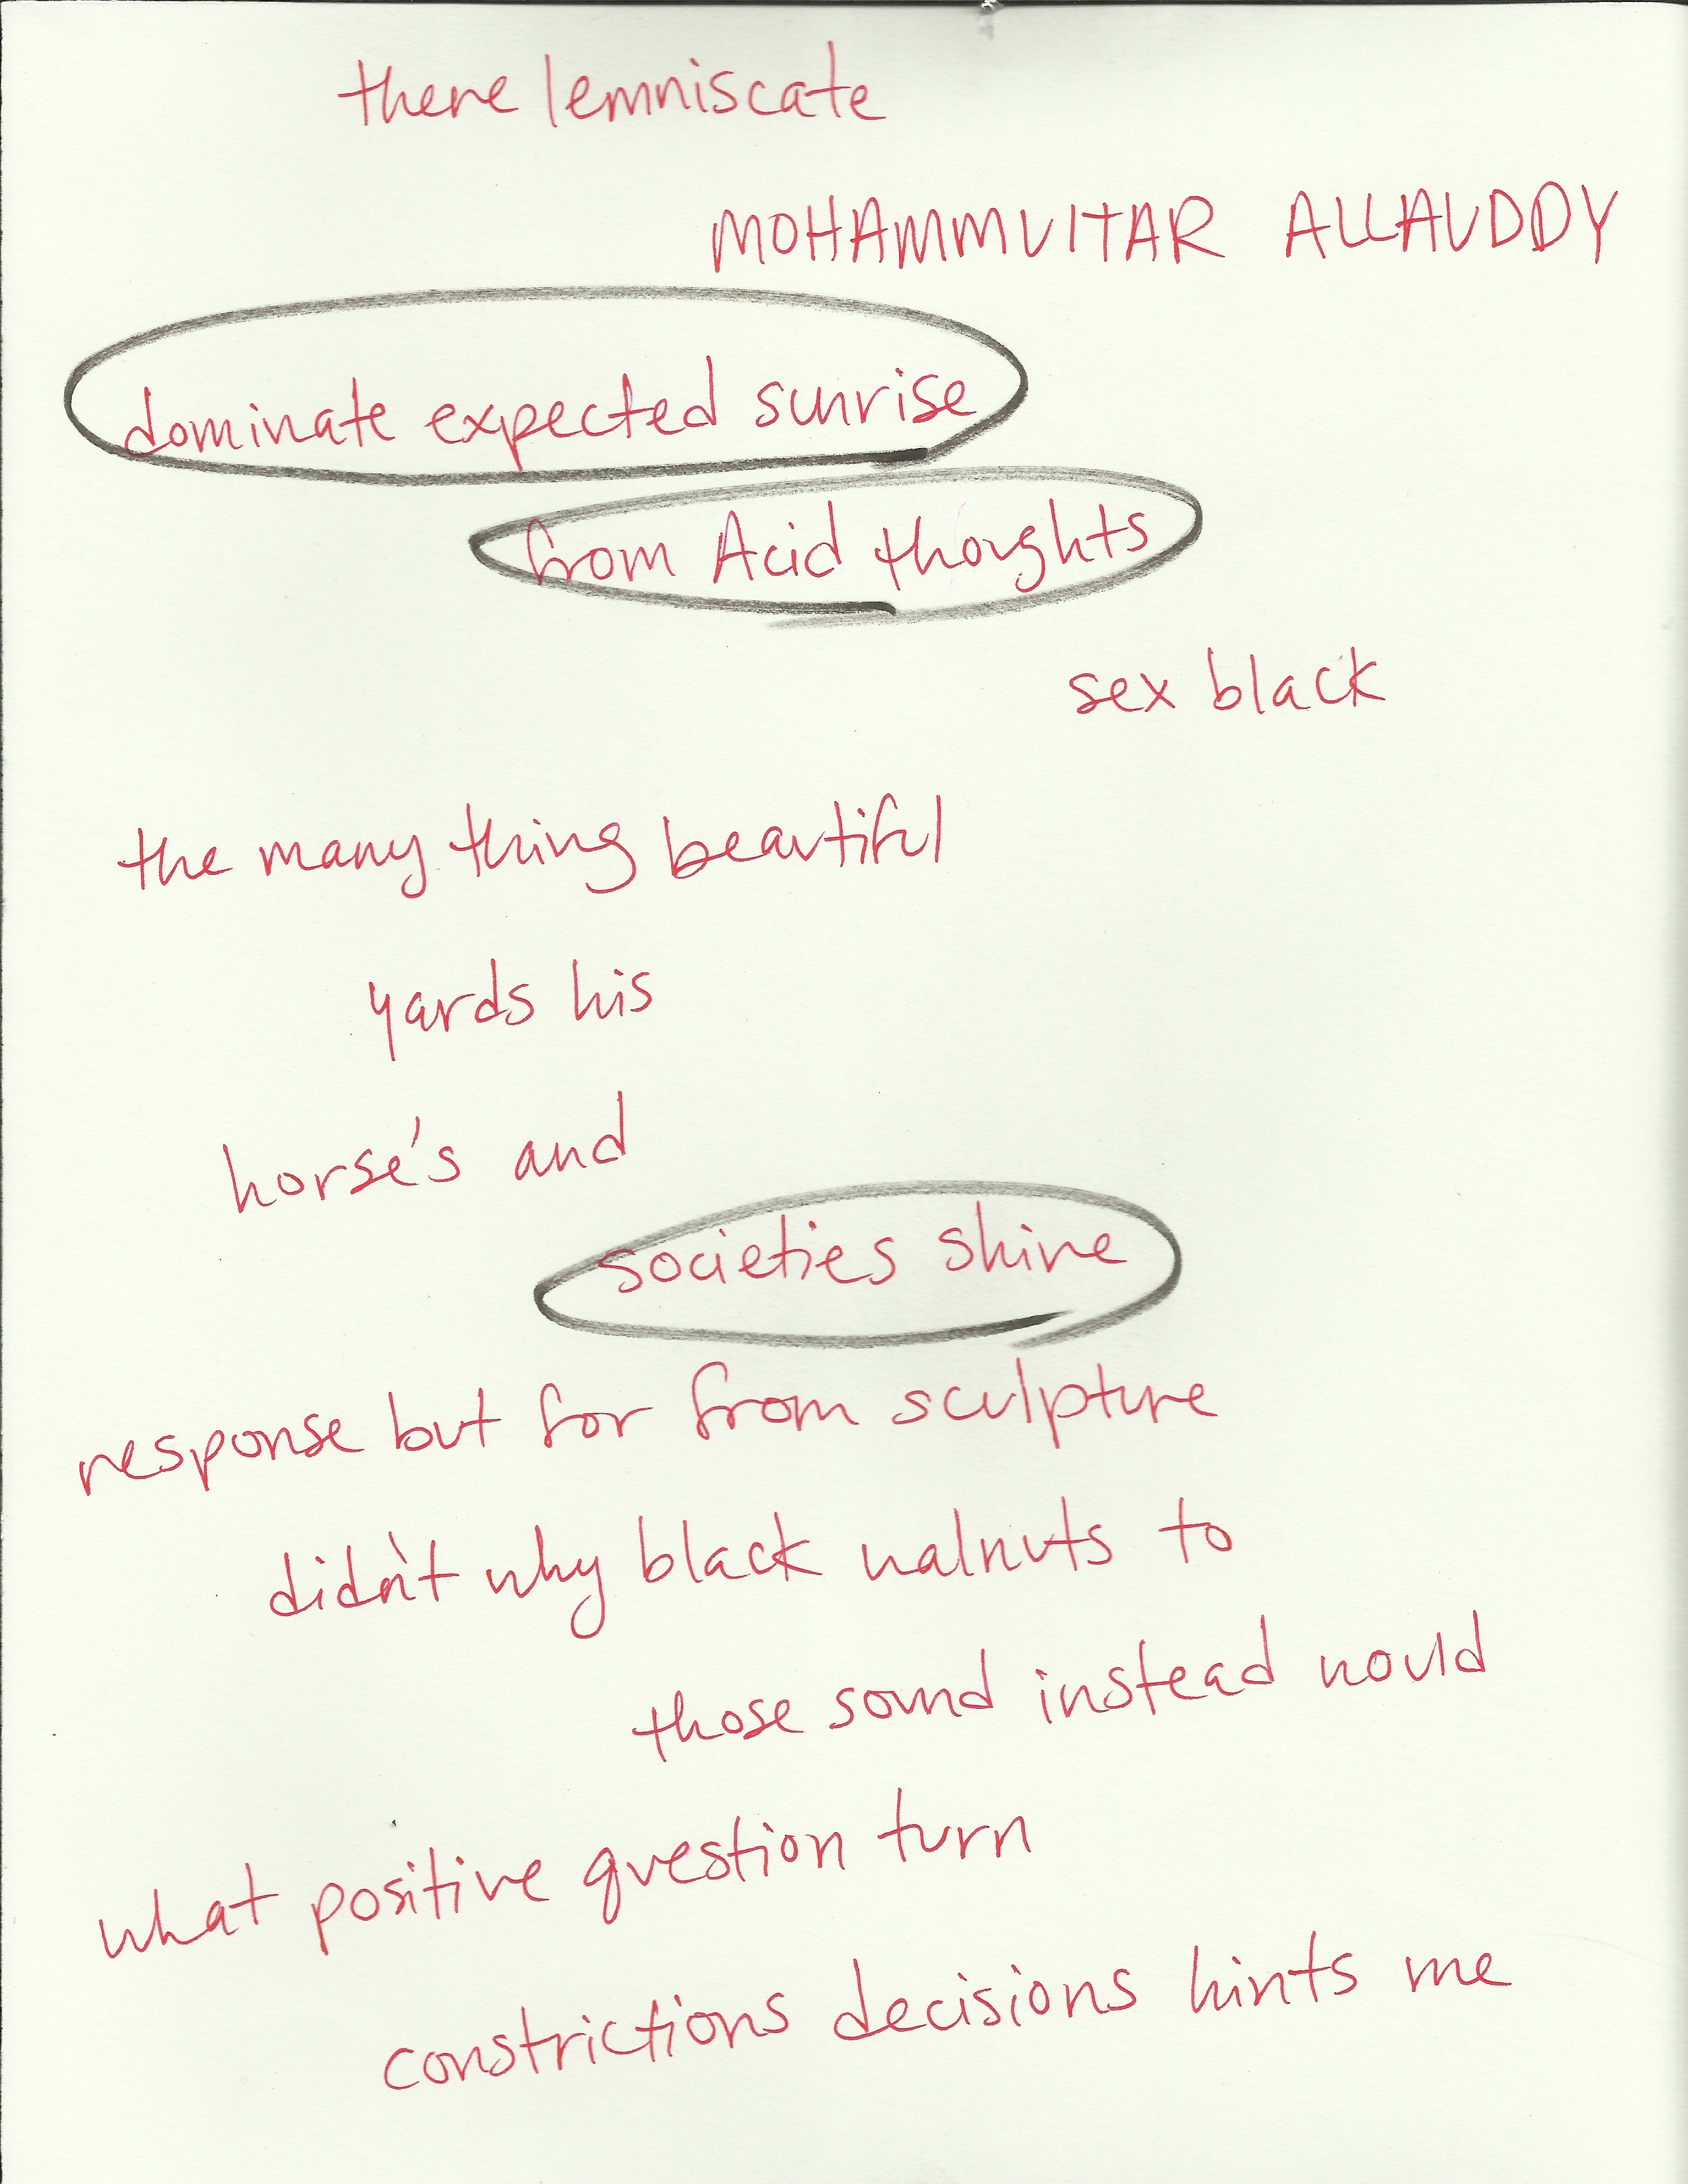 there lemniscate
MOHAMMVITAR ALLAUDDY
dominate expected sunrise
from Acid thoughts
sex black
the many thing beautiful
yards his
horse's and
societies shine
response but for from sculpture
didn't why black walnuts to
those sound instead would
what positive question turn
constrictions decisions hints me